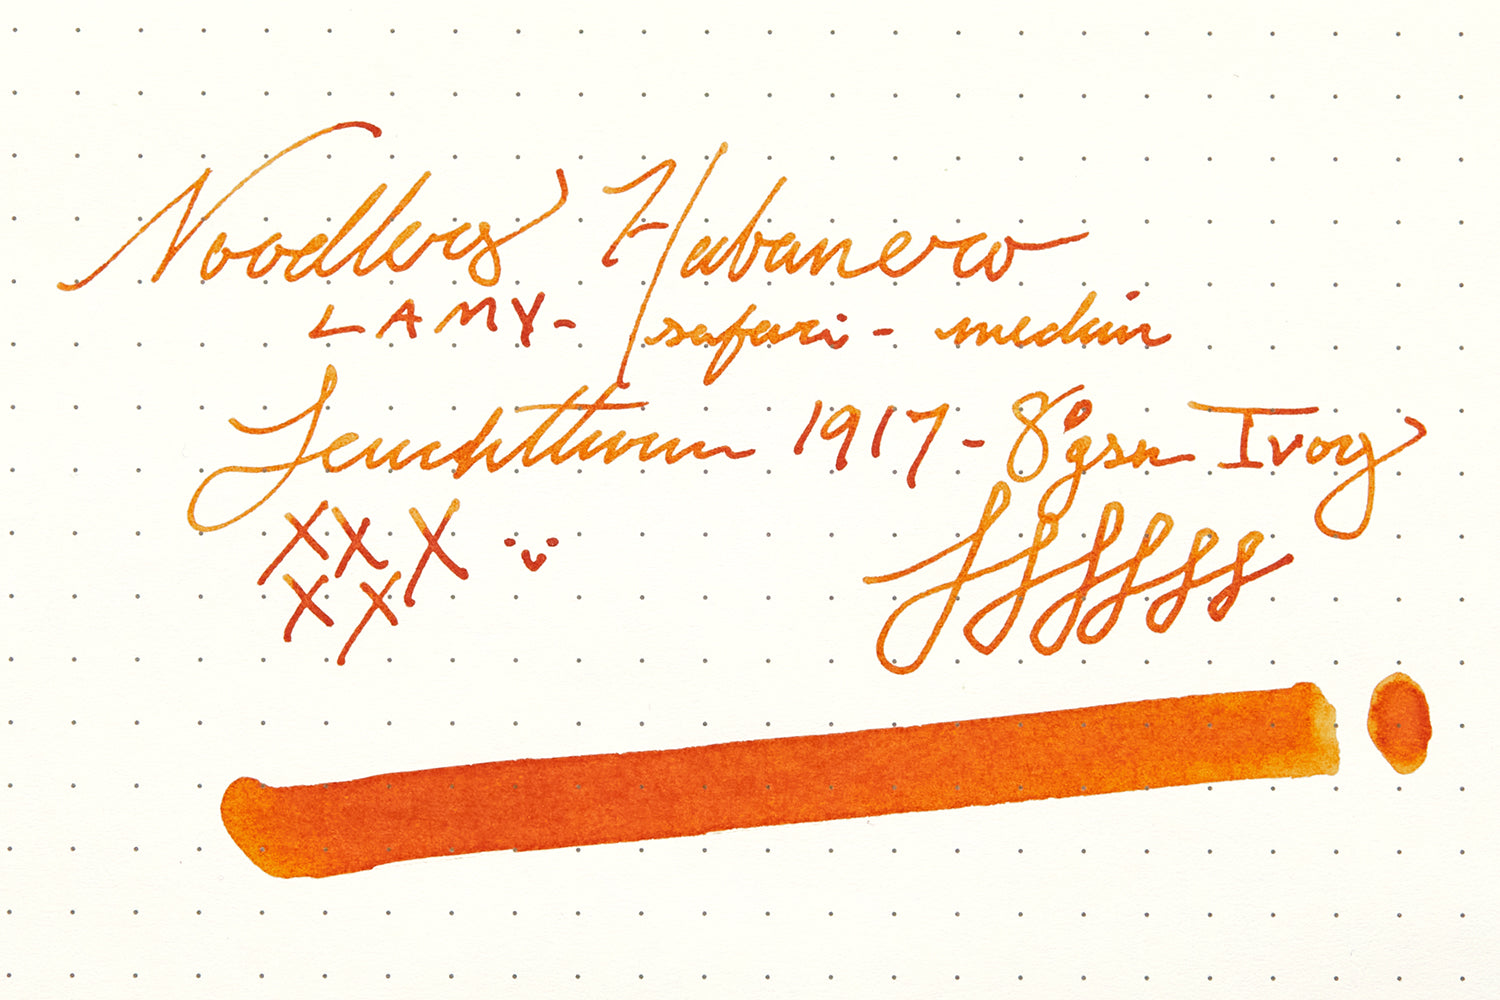 Noodlers Habanero
LAMY - safari - medium
Leuchtturm 1917 - 80gsm Ivory
XXX
XX